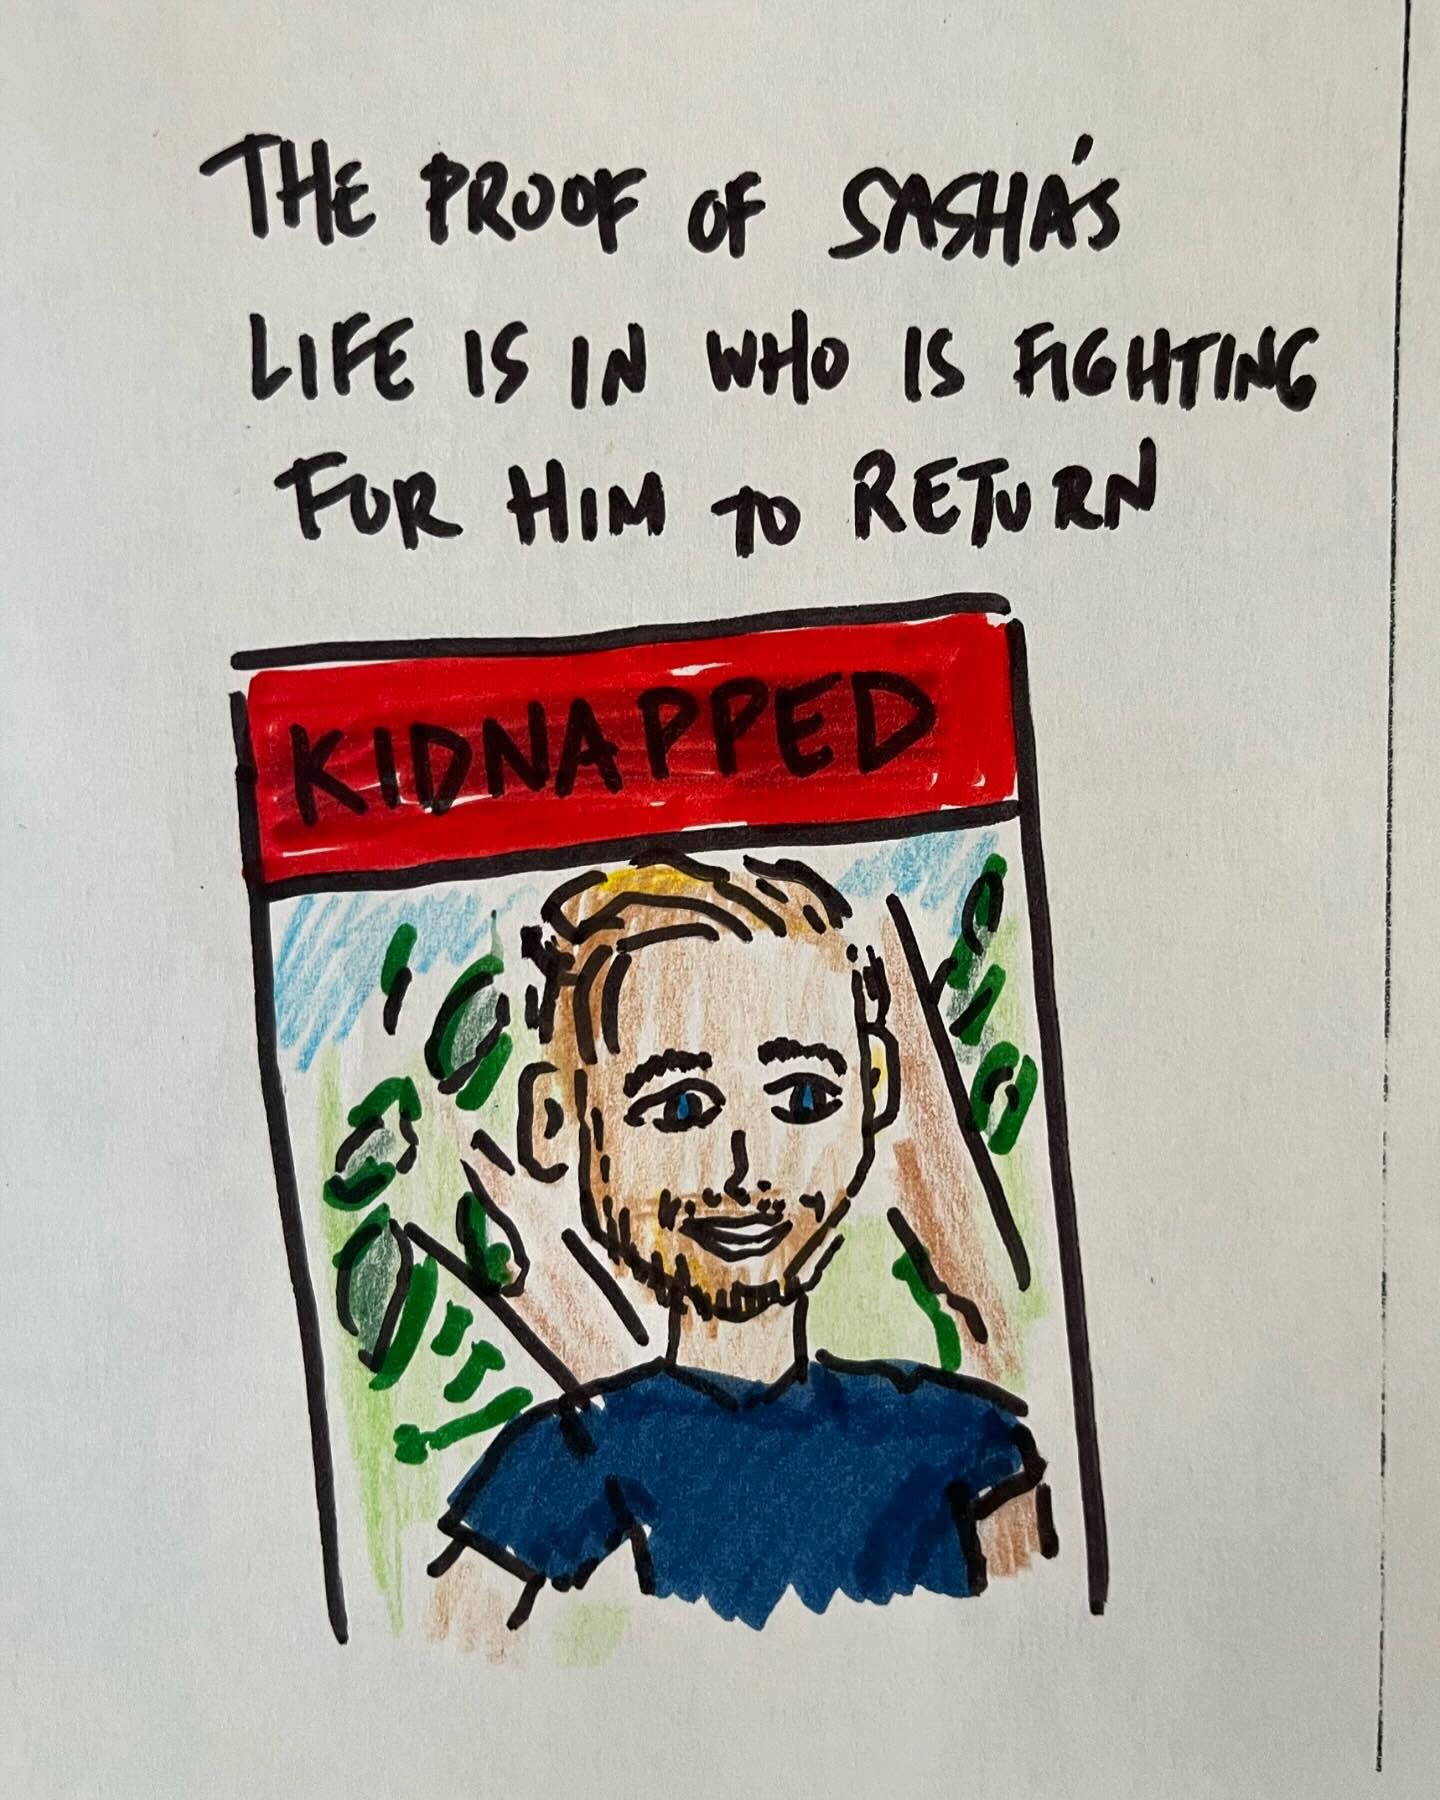 THE PROOF OF SASHA'S
LIFE IS IN WHO IS FIGHTING
FOR HIM TO RETURN
KIDNAPPED